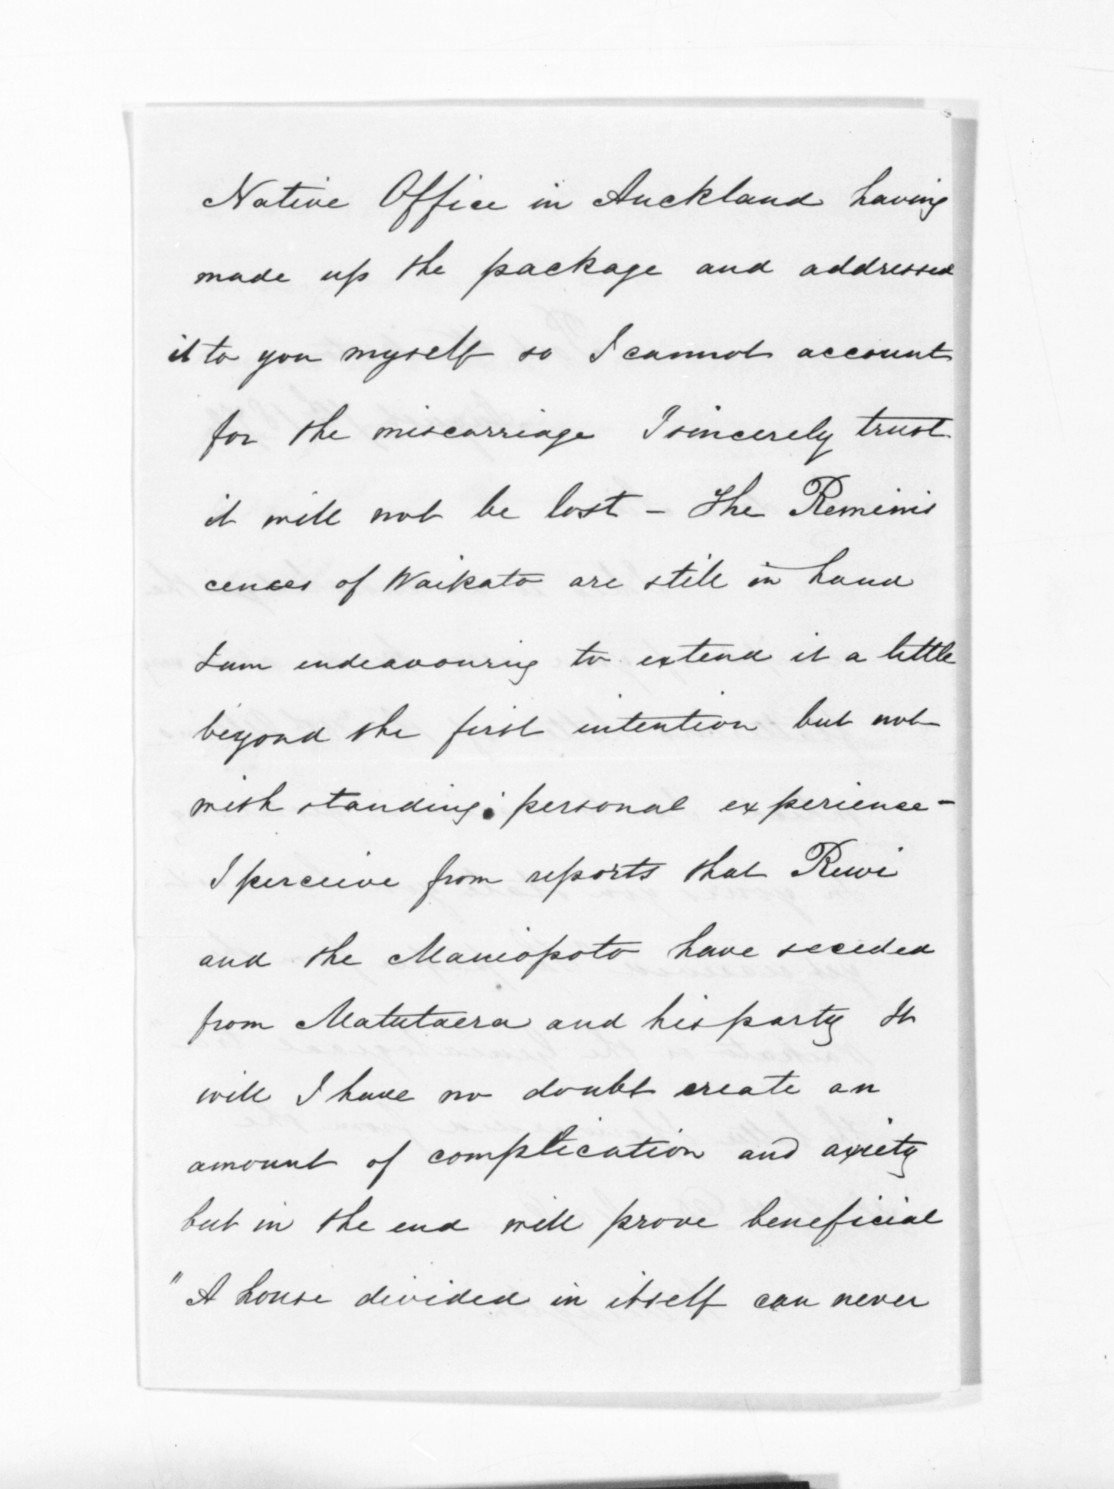 Native Office in Auckland having
made up the package and addressed
it to you myself so I cannot account
for the miscarriage I sincerely trust
it will not be lost - The Reminis
cences of Waikato are still in hand
I am endeavouring to extend it a little
beyond the first intention but not
with standing personal experience -
I perceive from reports that Rewi
and the Maniopoto have seceded
from Matutaera and his party It
will I have no doubt create an
amount of complication and axiety
but in the end will prove beneficial
"A house divided in itself can never